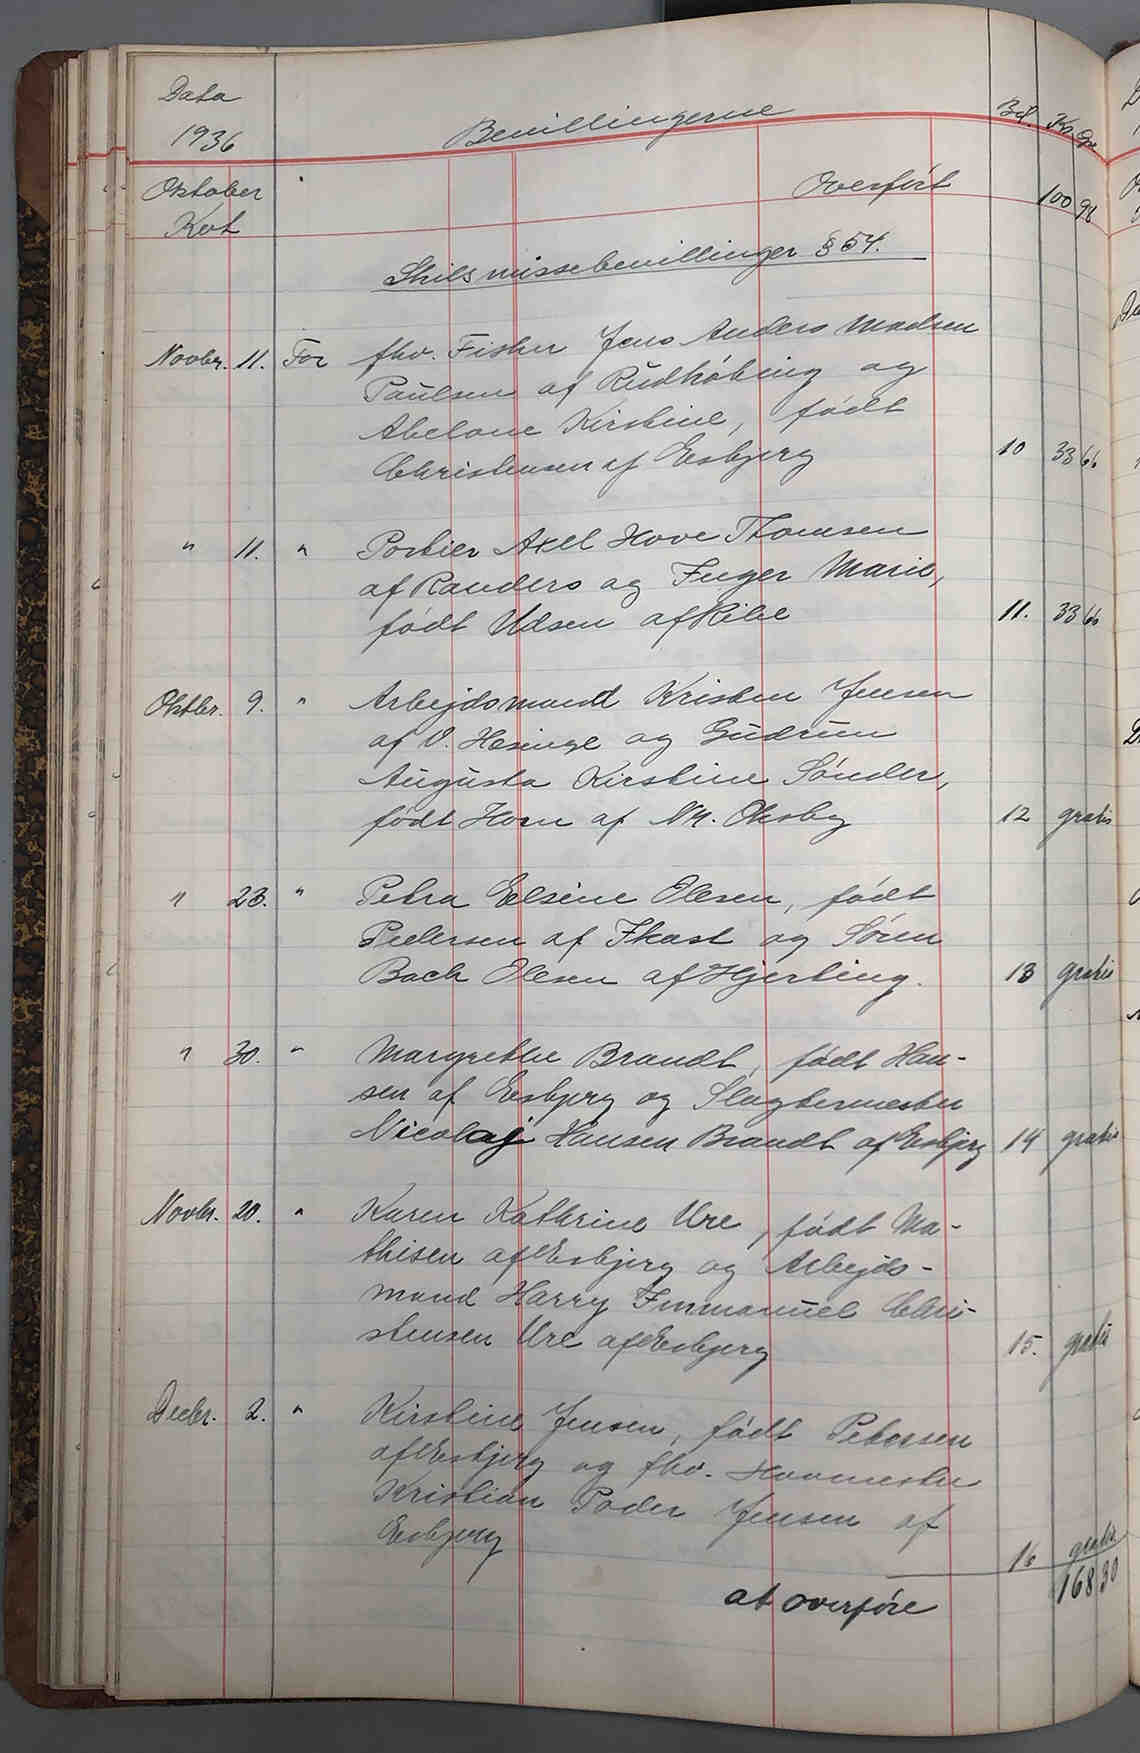 Data
1936
Bevillingerne
Bil. Kr Øre
Oktober
Kvt
Overført
100 98
Skilsmissebevillinger § 54.
Novbr. 11. For fhv. Fisker Jens Anders Madsen
Paulsen af Rudkøbing og
Abelone Kirstine, født
Christensen af Esbjerg 10 33 66
" 11. " Portier Axel Hove Thomsen
af Randers og Inger Marie,
født Udsen af Ribe 11. 33 66
Oktbr. 9. " Arbejdsmand Kristen Jensen
af V. Hæsinge og Gudrun
Augusta Kirstine Sønder,
født Horn af Nr. Oksby 12 gratis
" 23. " Petra Elsine Olesen, født
Pedersen af Ikast og Søren
Bach Olesen af Hjerting. 13 gratis
" 30. " Margrethe Brandt, født Han-
sen af Esbjerg og Slagtermester
Nicolaj Hansen Brandt af Esbjerg 14 gratis
Novbr. 20. " Karen Kathrine Ure, født Ma-
thisen af Esbjerg og Arbejds-
mand Harry Immanuel Chri-
stensen Ure af Esbjerg 15. gratis
Decbr. 2. " Kirstine Jensen, født Petersen
af Esbjerg og fhv. Hovmester
Kristian Poder Jensen af
Esbjerg 16 gratis
at overføre 168 30